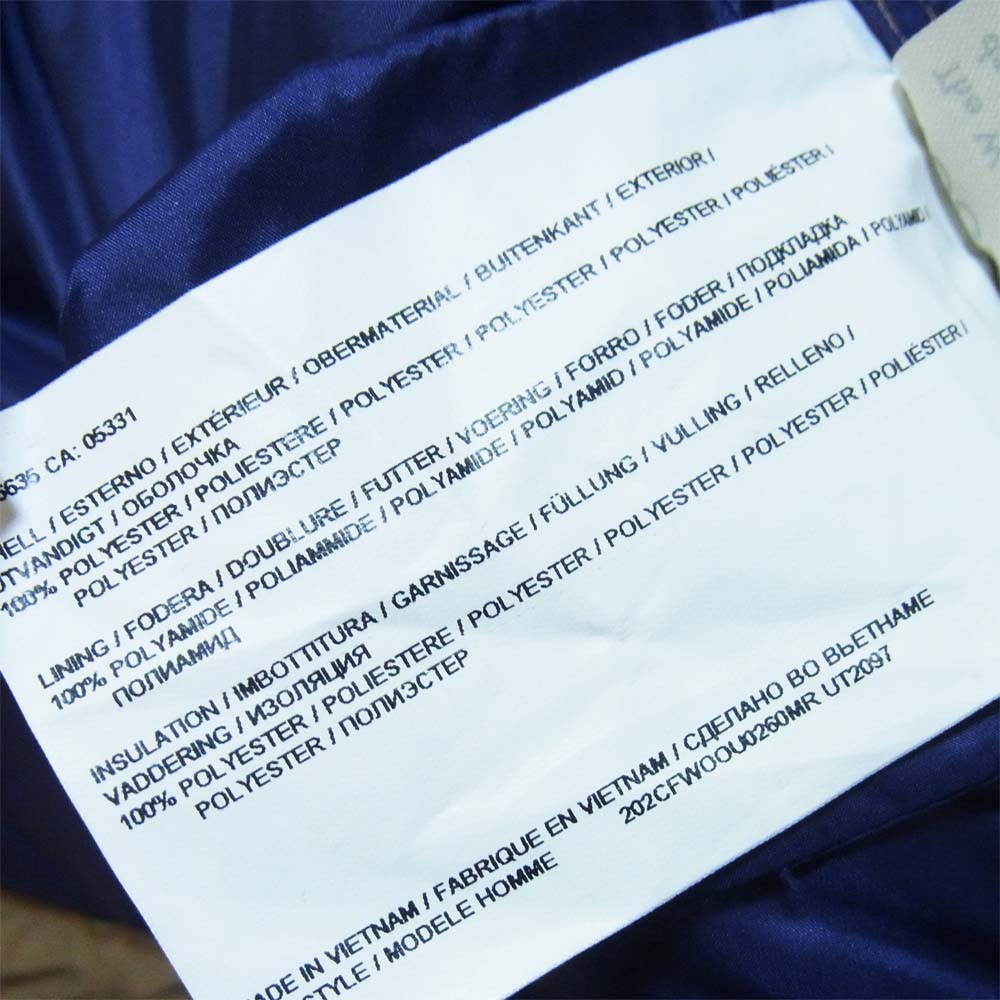 6635 CA: 05331
HELL / ESTERNO / EXTÉRIEUR / OBERMATERIAL / BUITENKANT / EXTERIOR /
UTVANDIGT / ОБОЛОЧКА
100% POLYESTER / POLIESTERE / POLYESTER / POLYESTER / POLYESTER / POLIÉSTER /
POLYESTER / ПОЛИЭСТЕР
LINING / FODERA / DOUBLURE / FUTTER / VOERING / FORRO / FODER / ПОДКЛАДКА
100% POLYAMIDE / POLIAMMIDE / POLYAMIDE / POLYAMID / POLYAMIDE / POLIAMIDA / POLYAMID /
ПОЛИАМИД
INSULATION / IMBOTTITURA / GARNISSAGE / FÜLLUNG / VULLING / RELLENO /
VADDERING / ИЗОЛЯЦИЯ
100% POLYESTER / POLIESTERE / POLYESTER / POLYESTER / POLYESTER / POLIÉSTER /
POLYESTER / ПОЛИЭСТЕР
ADE IN VIETNAM / FABRIQUE EN VIETNAM / СДЕЛАНО ВО ВЬЕТНАМЕ
STYLE / MODELE HOMME 202CFWOOU0260MR UT2097